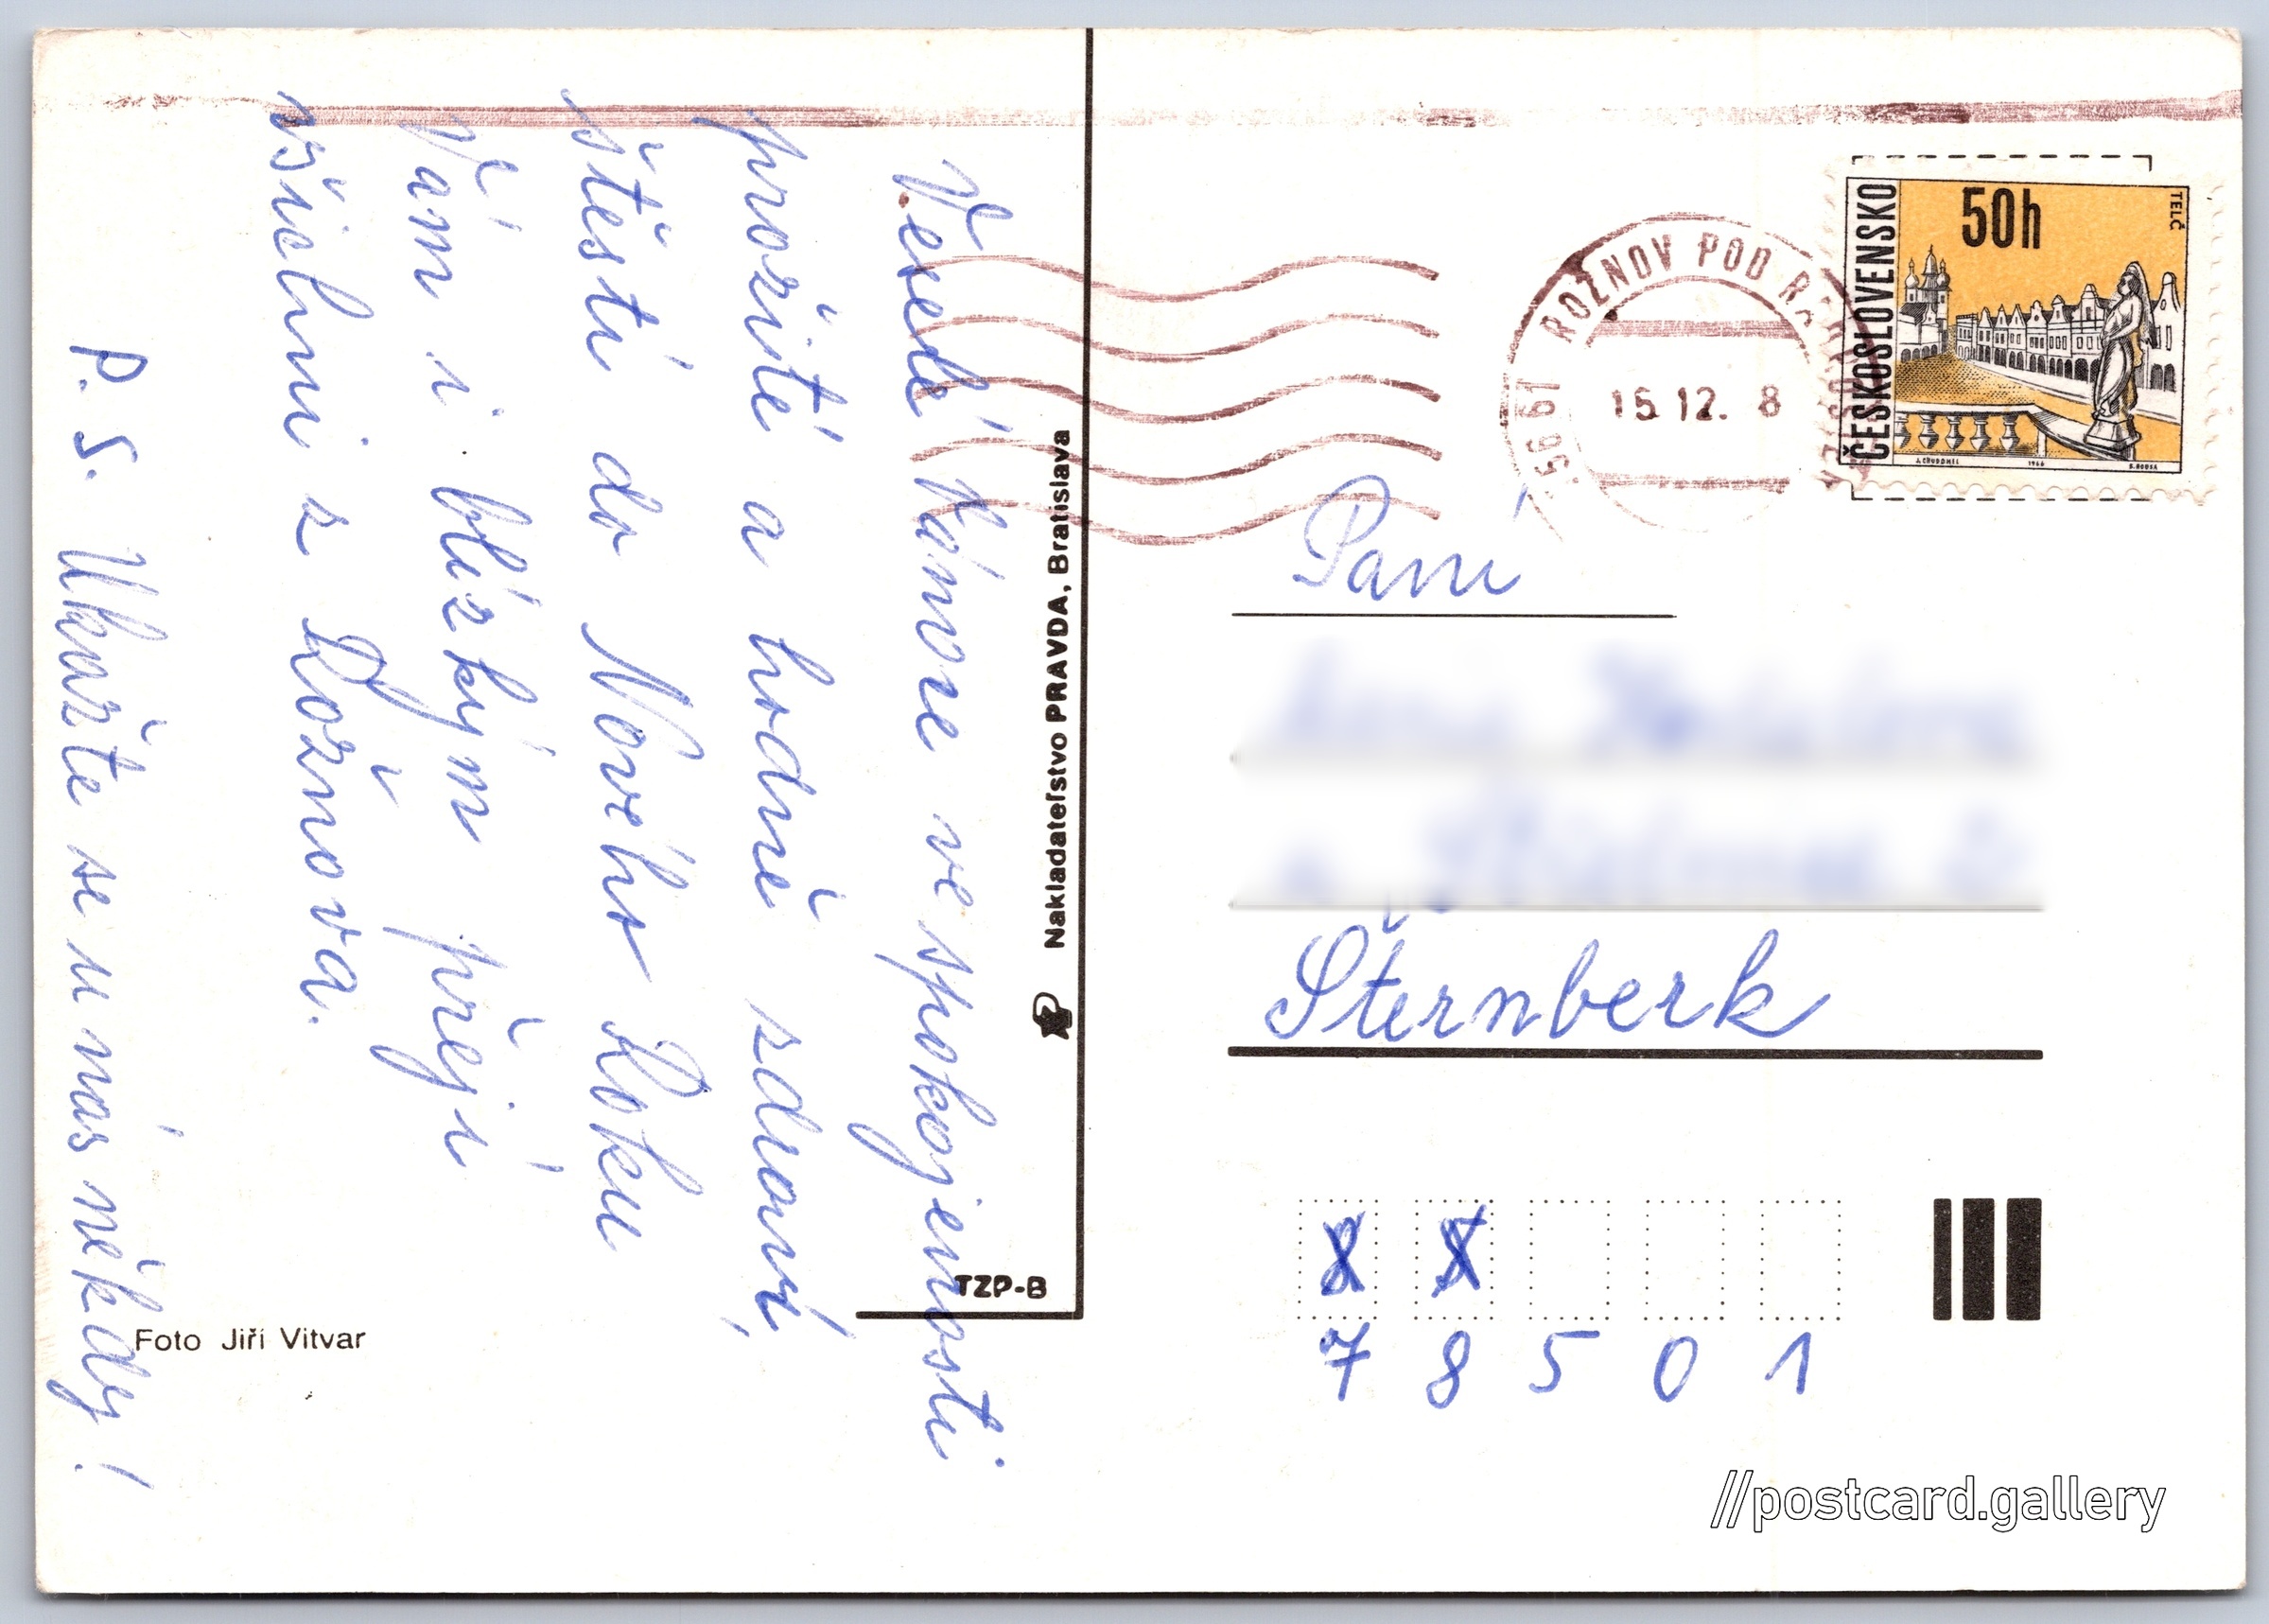 Veselé Vánoce ve spokojenosti
prožité a hodně zdraví,
štěstí do Nového Roku
Vám i blízkým přeji
všichni z Rožnova.
P. S. Ukažte se u nás někdy!
Foto Jiří Vitvar
Nakladateľstvo PRAVDA, Bratislava
TZP-B
ČESKOSLOVENSKO
50h
TELČ
1966
756 61 ROŽNOV POD
15.12. 8
Paní
Šternberk
7 8 5 0 1
//postcard.gallery